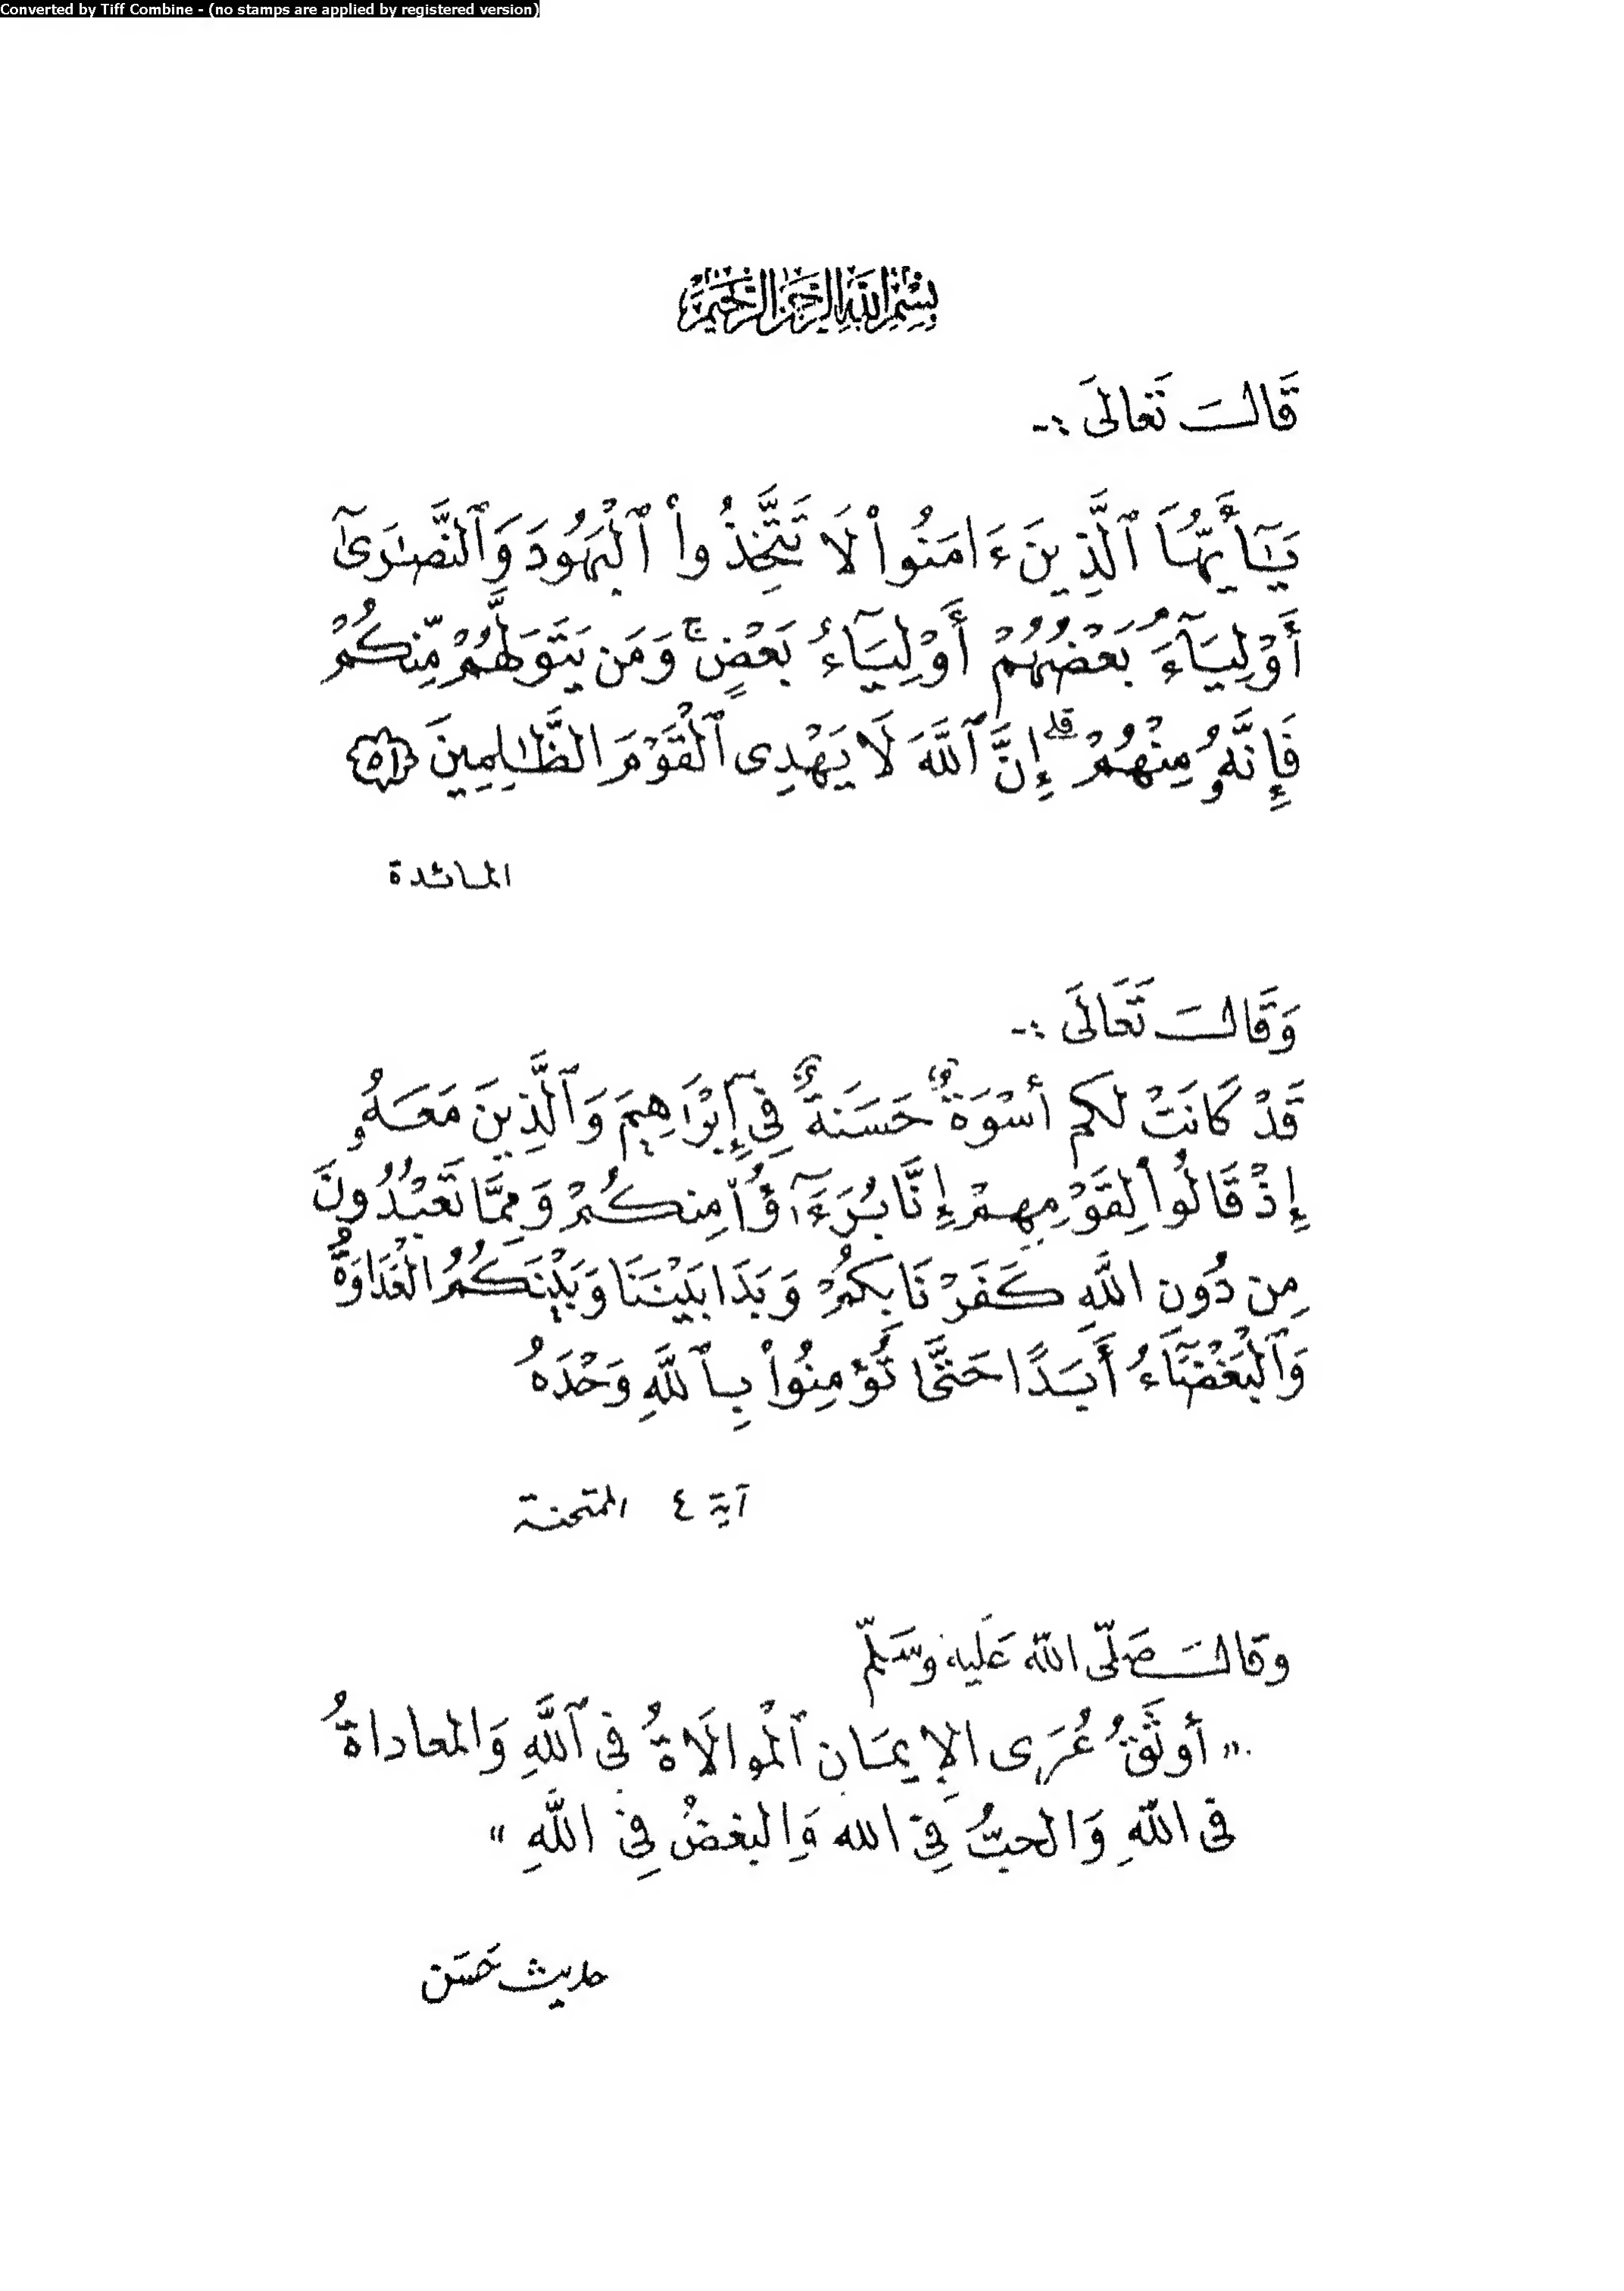 Converted by Tiff Combine - (no stamps are applied by registered version)
بِسْمِ اللَّهِ الرَّحْمَنِ الرَّحِيمِ
قَالَ تَعَالَى :-
يَٰٓأَيُّهَا ٱلَّذِينَ ءَامَنُوا۟ لَا تَتَّخِذُوا۟ ٱلْيَهُودَ وَٱلنَّصَٰرَىٰٓ
أَوْلِيَآءَ ۘ بَعْضُهُمْ أَوْلِيَآءُ بَعْضٍ ۚ وَمَن يَتَوَلَّهُم مِّنكُمْ
فَإِنَّهُۥ مِنْهُمْ ۗ إِنَّ ٱللَّهَ لَا يَهْدِى ٱلْقَوْمَ الظَّٰلِمِينَ ٥١
المائدة
وَقَالَ تَعَالَى :-
قَدْ كَانَتْ لَكُمْ أُسْوَةٌ حَسَنَةٌ فِىٓ إِبْرَاهِيمَ وَٱلَّذِينَ مَعَهُۥٓ
إِذْ قَالُوا۟ لِقَوْمِهِمْ إِنَّا بُرَءَٰٓؤُا۟ مِنكُمْ وَمِمَّا تَعْبُدُونَ
مِن دُونِ اللَّهِ كَفَرْنَا بِكُمْ وَبَدَا بَيْنَنَا وَبَيْنَكُمُ الْعَدَاوَةُ
وَٱلْبَغْضَآءُ أَبَدًا حَتَّىٰ تُؤْمِنُوا۟ بِٱللَّهِ وَحْدَهُ
آية ٤ الممتحنة
وقال صَلّى الله عَليه وسَلّم
« أوثَقُ عُرَى الإِيمَان ٱلْموالَاةُ فى ٱللَّهِ وَالمعاداةُ
فى اللّهِ وَالحبُّ فِى الله وَالبغضُ فِى اللَّهِ »
حديث حَسَن